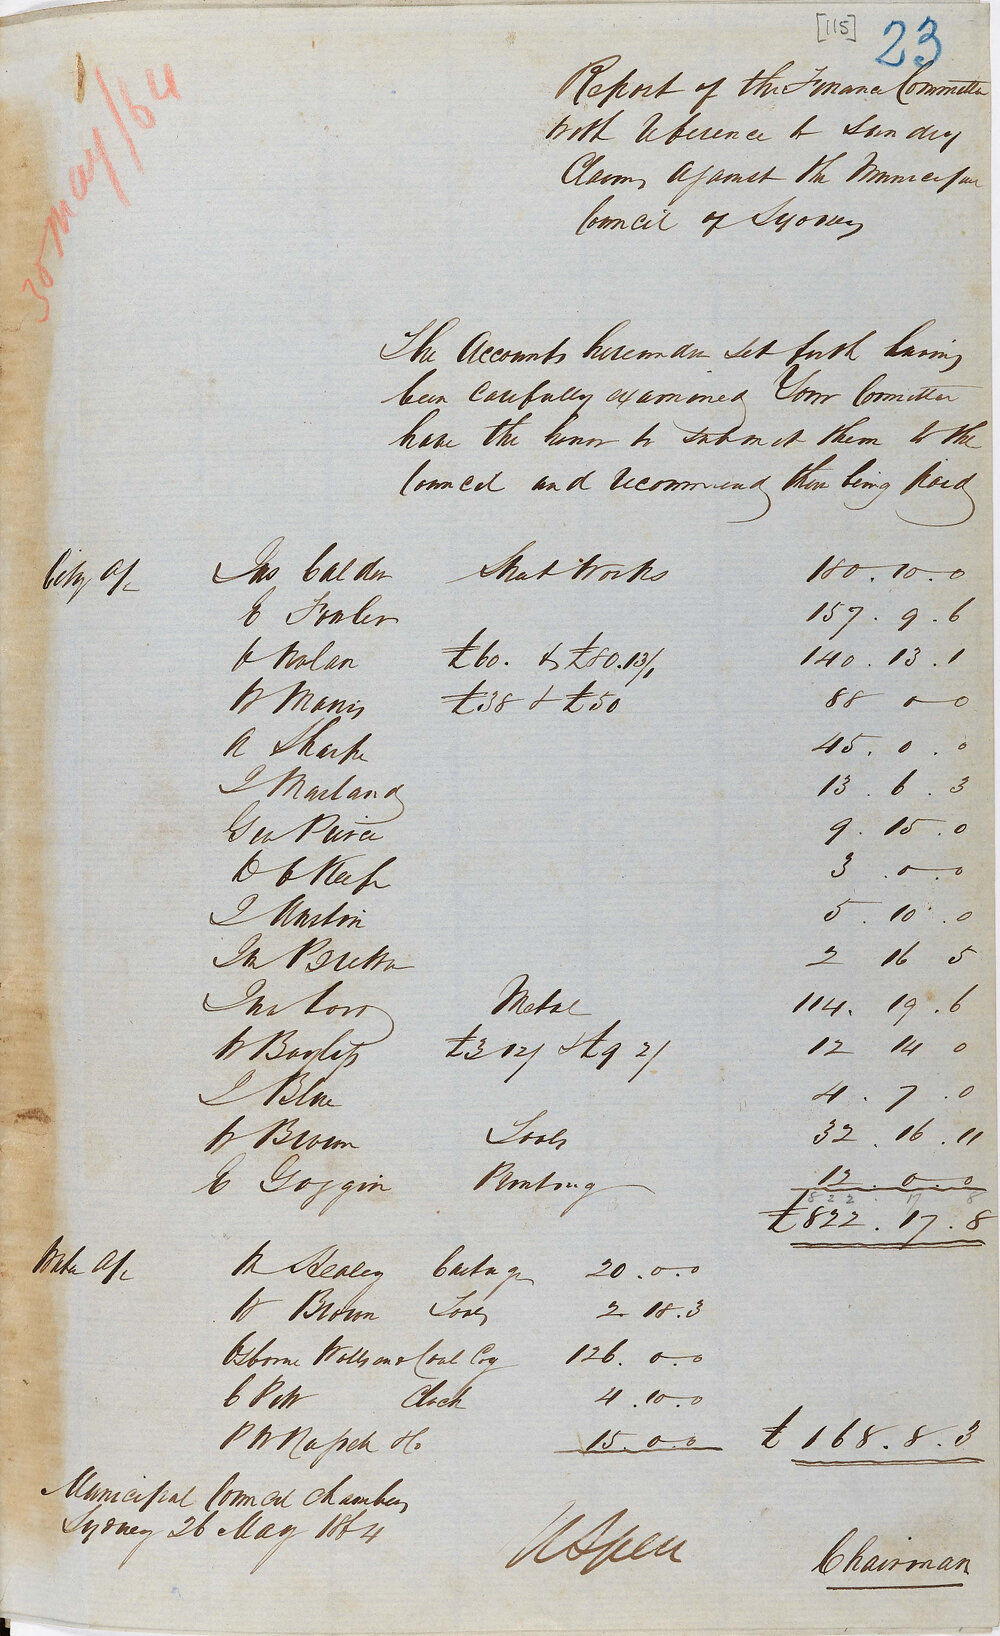 [115] 23
30 May/64
Report of the Finance Committee
with reference to Sundry
Claims against the Municipal
Council of Sydney
The Accounts hereunder set forth having
been carefully examined Your Committee
have the honor to submit them to the
Council and recommend their being Paid
City A/c Jas Calder Street Works 180.10.0
E Fowler 157.9.6
Nolan £60. & £80.13/1 140.13.1
W Morris £38 & £50 88 0 0
A Sharpe 45.0.0
J Marland 13.6.3
Geo Peirce 9.15.0
D O Keefe 3.0.0
J Austin 5.10.0
2 16 5
Metal 114.19.6
W Bayliss £3 12/ & £9 2/ 12 14 0
J Blue 4.7.0
W Brown Tools 32.16.11
E Goggin Printing 12.0.0
822.17 8
£822.17.8
Water A/c Healey Cartage 20.0.0
W Brown Tools 2 18.3
Osborne Wallsend Coal Coy 126.0.0
Clock 4.10.0
15.0.0 £168.8.3
Municipal Council Chambers
Sydney 26 May 1864
Chairman